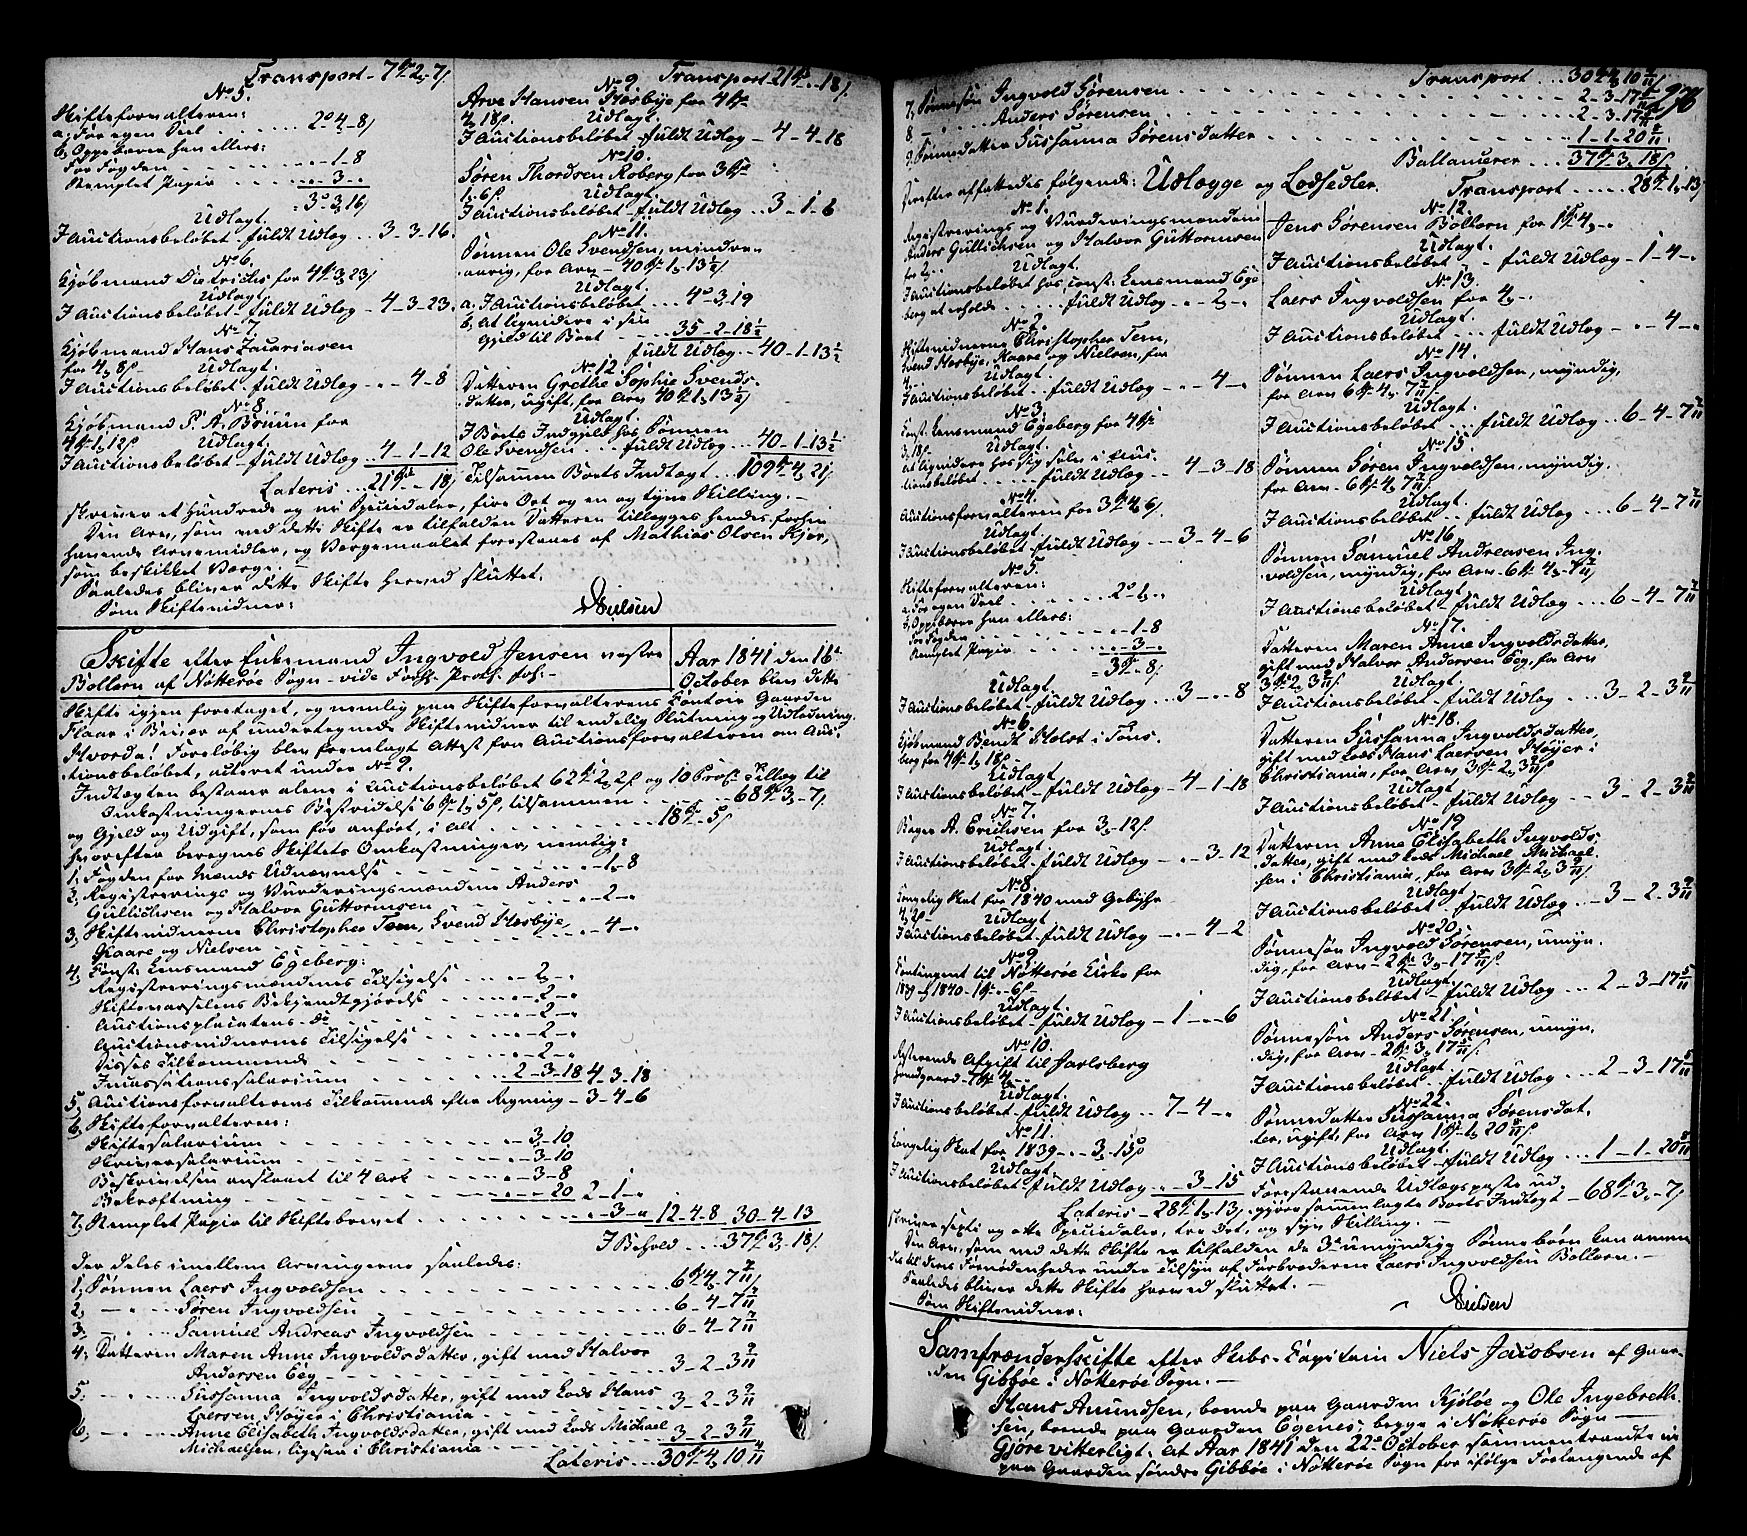 Transport - 7 2 7
No 5.
Skifteforvalteren:
a, For egen Deel . . . . . . 2 - 4 - 8
b, Oppebærer han ellers:
For Fogden . . . . . . 1 - 8
Stemplet Papir . . . . 3 -
3 - 3 - 16
Udlagt.
I Auctionsbeløbet - fuldt Udlæg . . 3 - 3 - 16.
No 6.
Kjøbmand Dietrichs for 4 3 23
Udlagt.
I Auctionsbeløbet - fuldt Udlæg - 4 - 3 - 23.
No 7.
Kjøbmand Hans Zacariasen
for 4 8
Udlagt.
I Auctionsbeløbet - fuldt Udlæg - 4 - 8
No 8
Kjøbmand P. A. Bruun for
4 1 12
Udlagt.
I Auctionsbeløbet - fuldt Udlæg . . 4 - 1 - 12
Lateris . . . 21 - 18
Transport - 21 - 18
No 9.
Arve Hansen Hesbye for 4
4 18
Udlagt.
I Auctionsbeløbet - fuldt Udlæg - 4 - 4 - 18
No 10.
Søren Thordsen Roberg for 3
1 - 6
Udlagt.
I Auctionsbeløbet - fuldt Udlæg . . 3 - 1 - 6
No 11.
Sønnen Ole Svendsen, mindre-
aarig, for Arv - 40 1 13 1/2
Udlagt.
a, I Auctionsbeløbet . . . 4 - 3 - 19
b, At liqvidere i sin
Gjeld til Boet . . . 35 - 2 - 18 1/2
fuldt Udlæg . . 40 - 1 - 13 1/2
No 12.
Datteren Grethe Sophie Svends-
datter, ugift, for Arv 40 1 13 1/2
Udlagt.
I Boets Indgjeld hos Sønnen
Ole Svendsen . . . fuldt Udlæg . . . 40 - 1 - 13 1/2
Tilsammen Boets Indtægt . . . 109 4 21
skriver et Hundrede og ni Speciedaler, fire Ort og en og tyve Skilling. -
Den Arv, som ved dette Skifte er tilfalden Datteren tillægges hendes forhen
havende Arvemidler, og Værgemaalet forestaaes af Mathias Olsen Kjær,
som beskikket Værge. -
Saaledes bliver dette Skifte herved sluttet.
Som Skiftevidner:
Nielsen
Skifte efter Enkemand Ingvold Jensen vestre
Bollern af Nøtterøe Sogn - vide Forh. Prot. fol: -
Aar 1841 den 16de
October blev dette
Skifte igjen foretaget, og nemlig paa Skifteforvalterens Contoir Gaarden
af undertegnede Skiftevidner til endelig Slutning og Udlodning.
Hvorda! Foreløbig blev fremlagt Attest fra Auctionsforvalteren om Auc-
tionsbeløbet, acteret under No 9.
Indtægten bestaaer alene i Auctionsbeløbet 62 2 2 og 10 Proc. Tillæg til
Omkostningernes Bestridelse 6 1 5, tilsammen . . . 68 3 - 7
og Gjeld og Udgift, som før anført, i alt . . . . . . 18 - 5
hvorefter beregnes Skiftets Omkostninger, nemlig:
1, Fogden for Mænds Udnævnelse . . . . . . 1 - 8
2, Registrerings og Vurderingsmændene Anders
Gullichsen og Halvor Guttormsen . . . . . . 2 -
3, Skiftevidnerne Christopher Tem, Svend Hesbye,
Kaare og Nielsen . . . . . . 4 -
4, Const: Lensmand Egeberg:
Registreringsmændenes Tilsigelse . . . 2 -
Skiftevarselens Bekjendtgjørelse . . . . 2 -
Auctionsplacatens - do . . . . 2 -
Auctionsvidnernes Tilsigelse . . . . 2 -
Disses Tilkommende . . . . . . 2 -
Incassationssalarium . . . . . . 2 - 3 - 18 4 - 3 - 18
5, Auctionsforvalterens Tilkommende efter Regning - 3 - 4 - 6
6, Skifteforvalteren:
Skiftesalarium . . . . . . 3 - 10
Skriversalarium . . . . . . 3 - 10
Beskrivelsen anslaaet til 4 Ark . . . 3 - 8
Bekræftning . . . . . . 20 2 - 1 -
7, Stemplet Papir til Skiftebrevet . . . . . . 3 - 12 - 4 - 8 30 - 4 - 13
I Behold . . . 37 3 - 18
Der deles imellem Arvingerne saaledes:
1, Sønnen Laers Ingvoldsen . . . . . . 6 4 7 7/11
2, - Søren Ingvoldsen . . . . . . 6 - 4 - 7 7/11
3, - Samuel Andreas Ingvoldsen . . . . . . 6 - 4 - 7 7/11
4, Datteren Maren Anne Ingvoldsdatter, gift med Halvor
Andersen Eeg . . . . . . 3 - 2 - 3 9/11
5, - Sussanna Ingvoldsdatter, gift med Lods Hans
Laersen Høyer i Christiania . . . . . . 3 - 2 - 3 9/11
6, - Anne Elisabeth Ingvoldsdatter, gift med Lods Michael
Michaelsen, ligesaa i Christiania . . . 3 - 2 - 3 9/11
Lateris . . . 30 4 10
Transport . . . 30 4 10
7, Sønnesøn Ingvold Sørensen . . . . . . 2 - 3 - 17 5/11
8 - Anders Sørensen . . . . . . 2 - 3 - 17 5/11
9, Sønnedatter Sussanna Sørensdatter . . . . . . 1 - 1 - 20
Ballancerer . . . 37 3 18
Derefter affattedes følgende: Udlægge og Lodsedler.
No 1.
Registrerings og Vurderingsmændene
Anders Gullichsen og Halvor Guttormsen
for 2
Udlagt.
I Auctionsbeløbet hos const: Lensmand Ege-
berg at erholde . . . fuldt Udlæg . . 2 -
No 2.
Skiftevidnerne Christopher Tem,
Svend Hesbye, Kaare og Nielsen, for
4
Udlagt.
I Auctionsbeløbet - fuldt Udlæg - 4 -
No 3.
Const: Lensmand Egeberg for 4
3 18
Udlagt.
At liqvidere hos sig selv i Auc-
tionsbeløbet . . . . . fuldt Udlæg - 4 - 3 - 18
No 4.
Auctionsforvalteren for 3 4 6
Udlagt.
I Auctionsbeløbet - fuldt Udlæg . . 3 - 4 - 6
No 5.
Skifteforvalteren:
a, For egen Deel . . . . . . 2 - 1 -
b, Oppebærer han ellers:
For Fogden . . . . . . 1 - 8
Stemplet Papir . . . . . . 3 -
3 - 8
Udlagt.
I Auctionsbeløbet - fuldt Udlæg . . . 3 - - 8
No 6.
Kjøbmand Bendt Holst i Tøns-
berg for 4 1 18
Udlagt
I Auctionsbeløbet - fuldt Udlæg - 4 - 1 - 18
No 7.
Bager A. Erichsen for 3 - 12
Udlagt.
I Auctionsbeløbet - fuldt Udlæg - 3 - 12
No 8.
Kongelig Skat for 1840 med Gebyhr
4 2
Udlagt
I Auctionsbeløbet - fuldt Udlæg . . 4 - 2
No 9
Contingent til Nøtterøe Kirke for
1839 & 1840 - 1 - - 6
Udlagt.
I Auctionsbeløbet - fuldt Udlæg - 1 - - 6
No 10.
Resterende Afgift til Jarlsberg
Hovedgaard - 7 4
Udlagt.
I Auctionsbeløbet - fuldt Udlæg . . 7 - 4 -
No 11.
Kongelig Skat for 1839 - 3 - 15
Udlagt
I Auctionsbeløbet - fuldt Udlæg . . 3 - 15
Lateris - 28 1 13
Transport . . . . . 28 1 13
No 12.
Jens Sørensen Bollern for 1 4
Udlagt.
I Auctionsbeløbet - fuldt Udlæg - 1 - 4 -
No 13.
Laers Ingvoldsen for 4
Udlagt.
I Auctionsbeløbet . . . fuldt Udlæg - 4 -
No 14.
Sønnen Laers Ingvoldsen, myndig,
for Arv 6 4 7 7/11
Udlagt.
I Auctionsbeløbet . . . fuldt Udlæg . . 6 - 4 - 7 7/11
No 15.
Sønnen Søren Ingvoldsen, myndig.
for Arv - 6 4 7 7/11
Udlagt.
I Auctionsbeløbet - fuldt Udlæg . . . 6 - 4 - 7 7/11
No 16.
Sønnen Samuel Andreasen Ing-
voldsen, myndig, for Arv - 6 4 7 7/11
Udlagt.
I Auctionsbeløbet . . fuldt Udlæg . . . 6 - 4 - 7 7/11
No 17.
Datteren Maren Anne Ingvoldsdatter,
gift med Halvor Andersen Eeg, for Arv
3 2 3 9/11
Udlagt.
I Auctionsbeløbet - fuldt Udlæg . . 3 - 2 - 3 9/11
No 18.
Datteren Sussanna Ingvoldsdatter,
gift med Lods Hans Laersen Høyer i
Christiania, for Arv 3 2 3 9/11
Udlagt
I Auctionsbeløbet - fuldt Udlæg . . . 3 - 2 - 3 9/11
No 19
Datteren Anne Elisabeth Ingvolds-
datter, gift med Lods Michael Michael-
sen i Christiania, for Arv 3 2 3 9/11
Udlagt
I Auctionsbeløbet . . fuldt Udlæg . . 3 - 2 - 3 9/11
No 20.
Sønnesøn Ingvold Sørensen, umyn-
dig, for Arv - 2 3 - 17 5/11
Udlagt.
I Auctionsbeløbet - fuldt Udlæg . . . 2 - 3 - 17 5/11
No 21.
Sønnesøn Anders Sørensen, umyn-
dig, for Arv - 2 3 17 5/11
Udlagt.
I Auctionsbeløbet . . fuldt Udlæg . . . 2 - 3 - 17 5/11
No 22.
Sønnedatter Sussanna Sørensdat-
ter, ugift, for Arv 1 1 20
Udlagt.
I Auctionsbeløbet - fuldt Udlæg . . . 1 - 1 - 20
Forestaaende Udlægsposter ud-
gjøre sammenlagte Boets Indtægt - 68 3 - 7
skriver sexti og otte Speciedaler, tre Ort, og syv Skilling. -
Den Arv, som ved dette Skifte er tilfalden de 3de umyndige Sønnebørn kan anven-
des til deres Fornødenheder under Tilsyn af Farbroderen Laers Ingvoldsen Bollern. -
Saaledes bliver dette Skifte herved sluttet. -
Som Skiftevidner:
Nielsen
Samfrændeskifte efter Skibs-Capitain Niels Jacobsen af Gaar-
den Gibbøe i Nøtterøe Sogn. -
Hans Amundsen, boende paa Gaarden Kjøløe og Ole Ingebreth-
sen, boende paa Gaarden Egenes, begge i Nøtterøe Sogn
Gjøre vitterligt, at Aar 1841 den 22de October sammentraadte vi
paa Gaarden søndre Gibbøe i Nøtterøe Sogn for ifølge Forlangende af